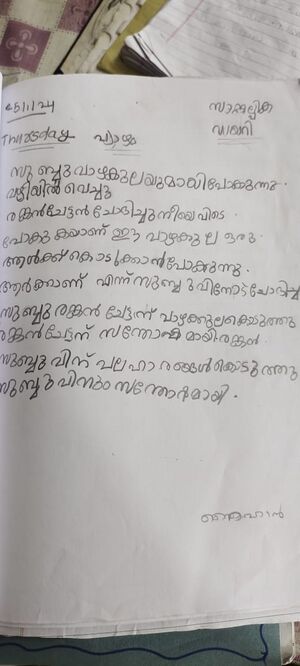 25/1/24
സാങ്കല്പിക
ഡയറി
Thursday വ്യാഴം
സുബ്ബു വാഴക്കുലയുമായിപോക്കുന്നു.
വഴിയിൽ വെച്ചു
രങ്കൻചേട്ടൻ ചോദിച്ചു നീയെവിടെ.
പോകുകയാണ് ഈ വാഴക്കുല ഒരു.
ആൾക്ക് കൊടുക്കാൻപോക്കുന്നു.
ആർക്കാണ് എന്ന് സുബ്ബുവിനോട്ചോദിച്ചു
സുബ്ബു രങ്കൻ ചേട്ടന് വാഴക്കുലകൊടുത്തു
രങ്കൻചേട്ടന് സന്തോഷമായിരങ്കൻ.
സുബ്ബുവിന് പലഹാരങ്ങൾകൊടുത്തു
സുബ്ബുവിനും സന്തോഷമായി.